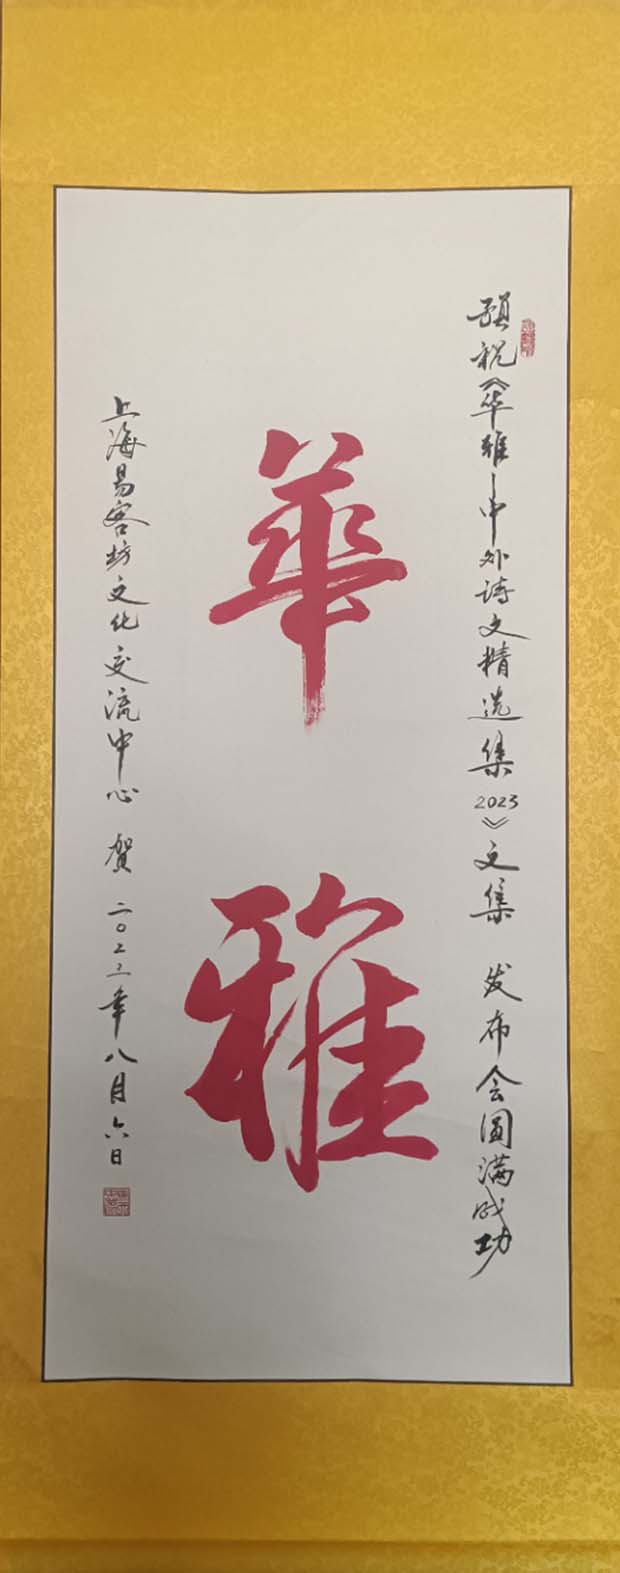 預祝《华雅－中外诗文精选集2023》文集 发布会圆满成功
華雅
上海易客坊文化交流中心 贺 二〇二三年八月六日